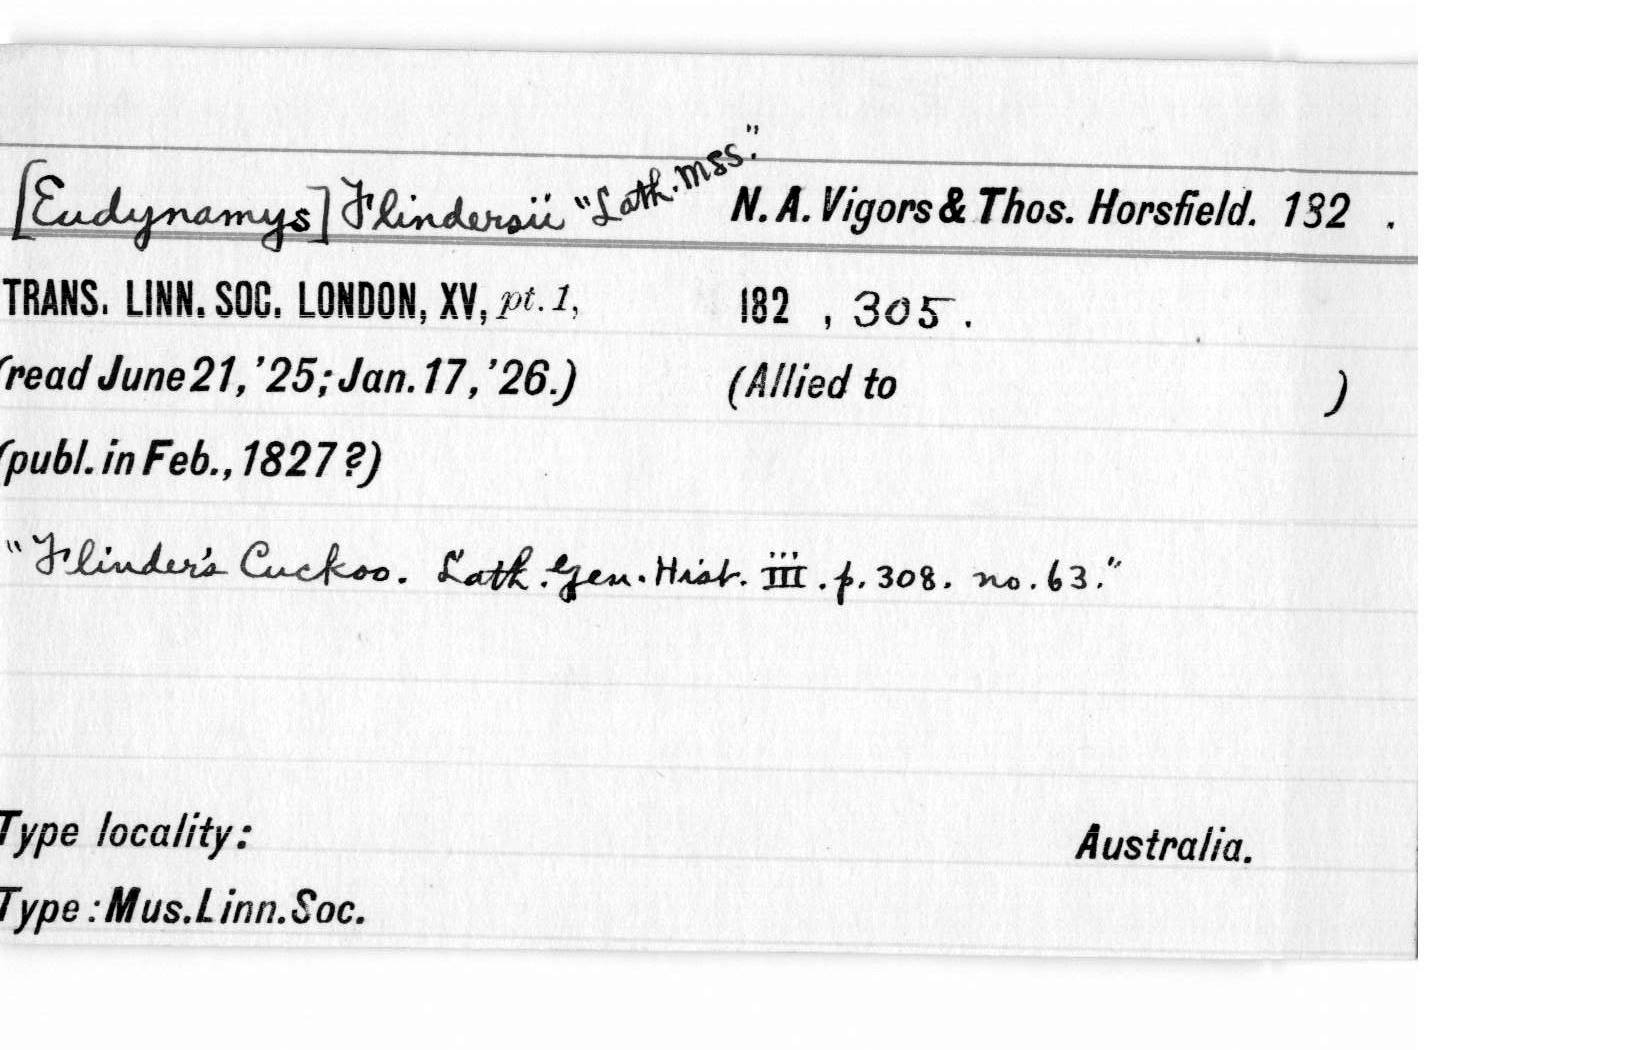 [Eudynamys] Flindersii "Lath. mss." N. A. Vigors & Thos. Horsfield. 182 .
TRANS. LINN. SOC. LONDON, XV, pt. 1, 182 , 305.
(read June 21, '25; Jan. 17, '26.) (Allied to )
(publ. in Feb., 1827?)
"Flinder's Cuckoo. Lath. Gen. Hist. III. p. 308. no. 63."
Type locality: Australia.
Type: Mus. Linn. Soc.